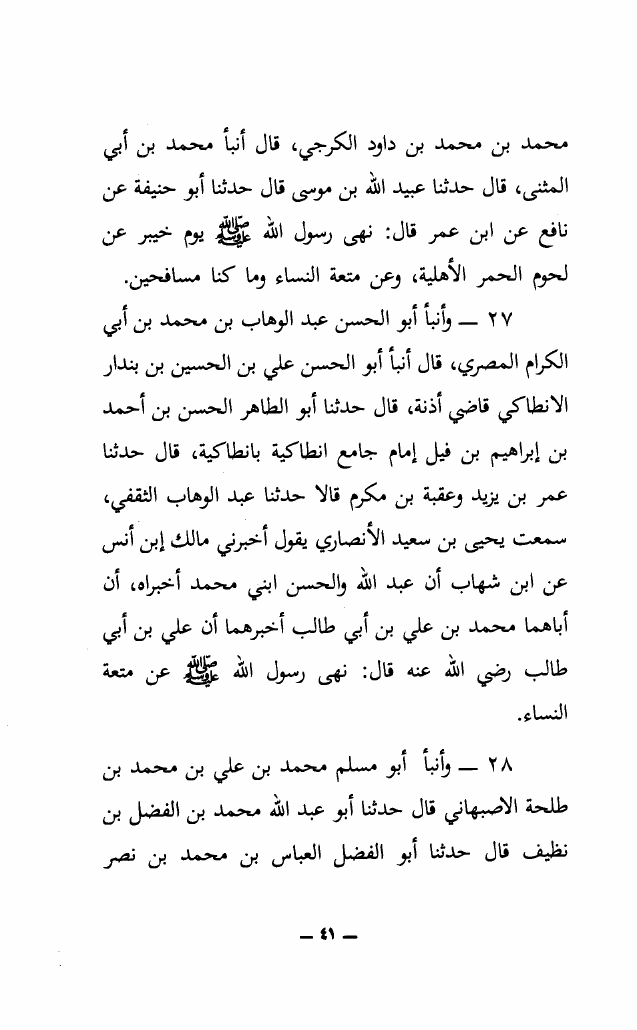 محمد بن محمد بن داود الكرجي، قال أنبأ محمد بن أبي
المثنى، قال حدثنا عبيد الله بن موسى قال حدثنا أبو حنيفة عن
نافع عن ابن عمر قال: نهى رسول الله ﷺ يوم خيبر عن
لحوم الحمر الأهلية، وعن متعة النساء وما كنا مسافحين.
٢٧ — وأنبأ أبو الحسن عبد الوهاب بن محمد بن أبي
الكرام المصري، قال أنبأ أبو الحسن علي بن الحسين بن بندار
الانطاكي قاضي أذنة، قال حدثنا أبو الطاهر الحسن بن أحمد
بن إبراهيم بن فيل إمام جامع انطاكية بانطاكية، قال حدثنا
عمر بن يزيد وعقبة بن مكرم قالا حدثنا عبد الوهاب الثقفي،
سمعت يحيى بن سعيد الأنصاري يقول أخبرني مالك إبن أنس
عن ابن شهاب أن عبد الله والحسن ابني محمد أخبراه، أن
أباهما محمد بن علي بن أبي طالب أخبرهما أن علي بن أبي
طالب رضي الله عنه قال: نهى رسول الله ﷺ عن متعة
النساء.
٢٨ — وأنبأ أبو مسلم محمد بن علي بن محمد بن
طلحة الاصبهاني قال حدثنا أبو عبد الله محمد بن الفضل بن
نظيف قال حدثنا أبو الفضل العباس بن محمد بن نصر
— ٤١ —